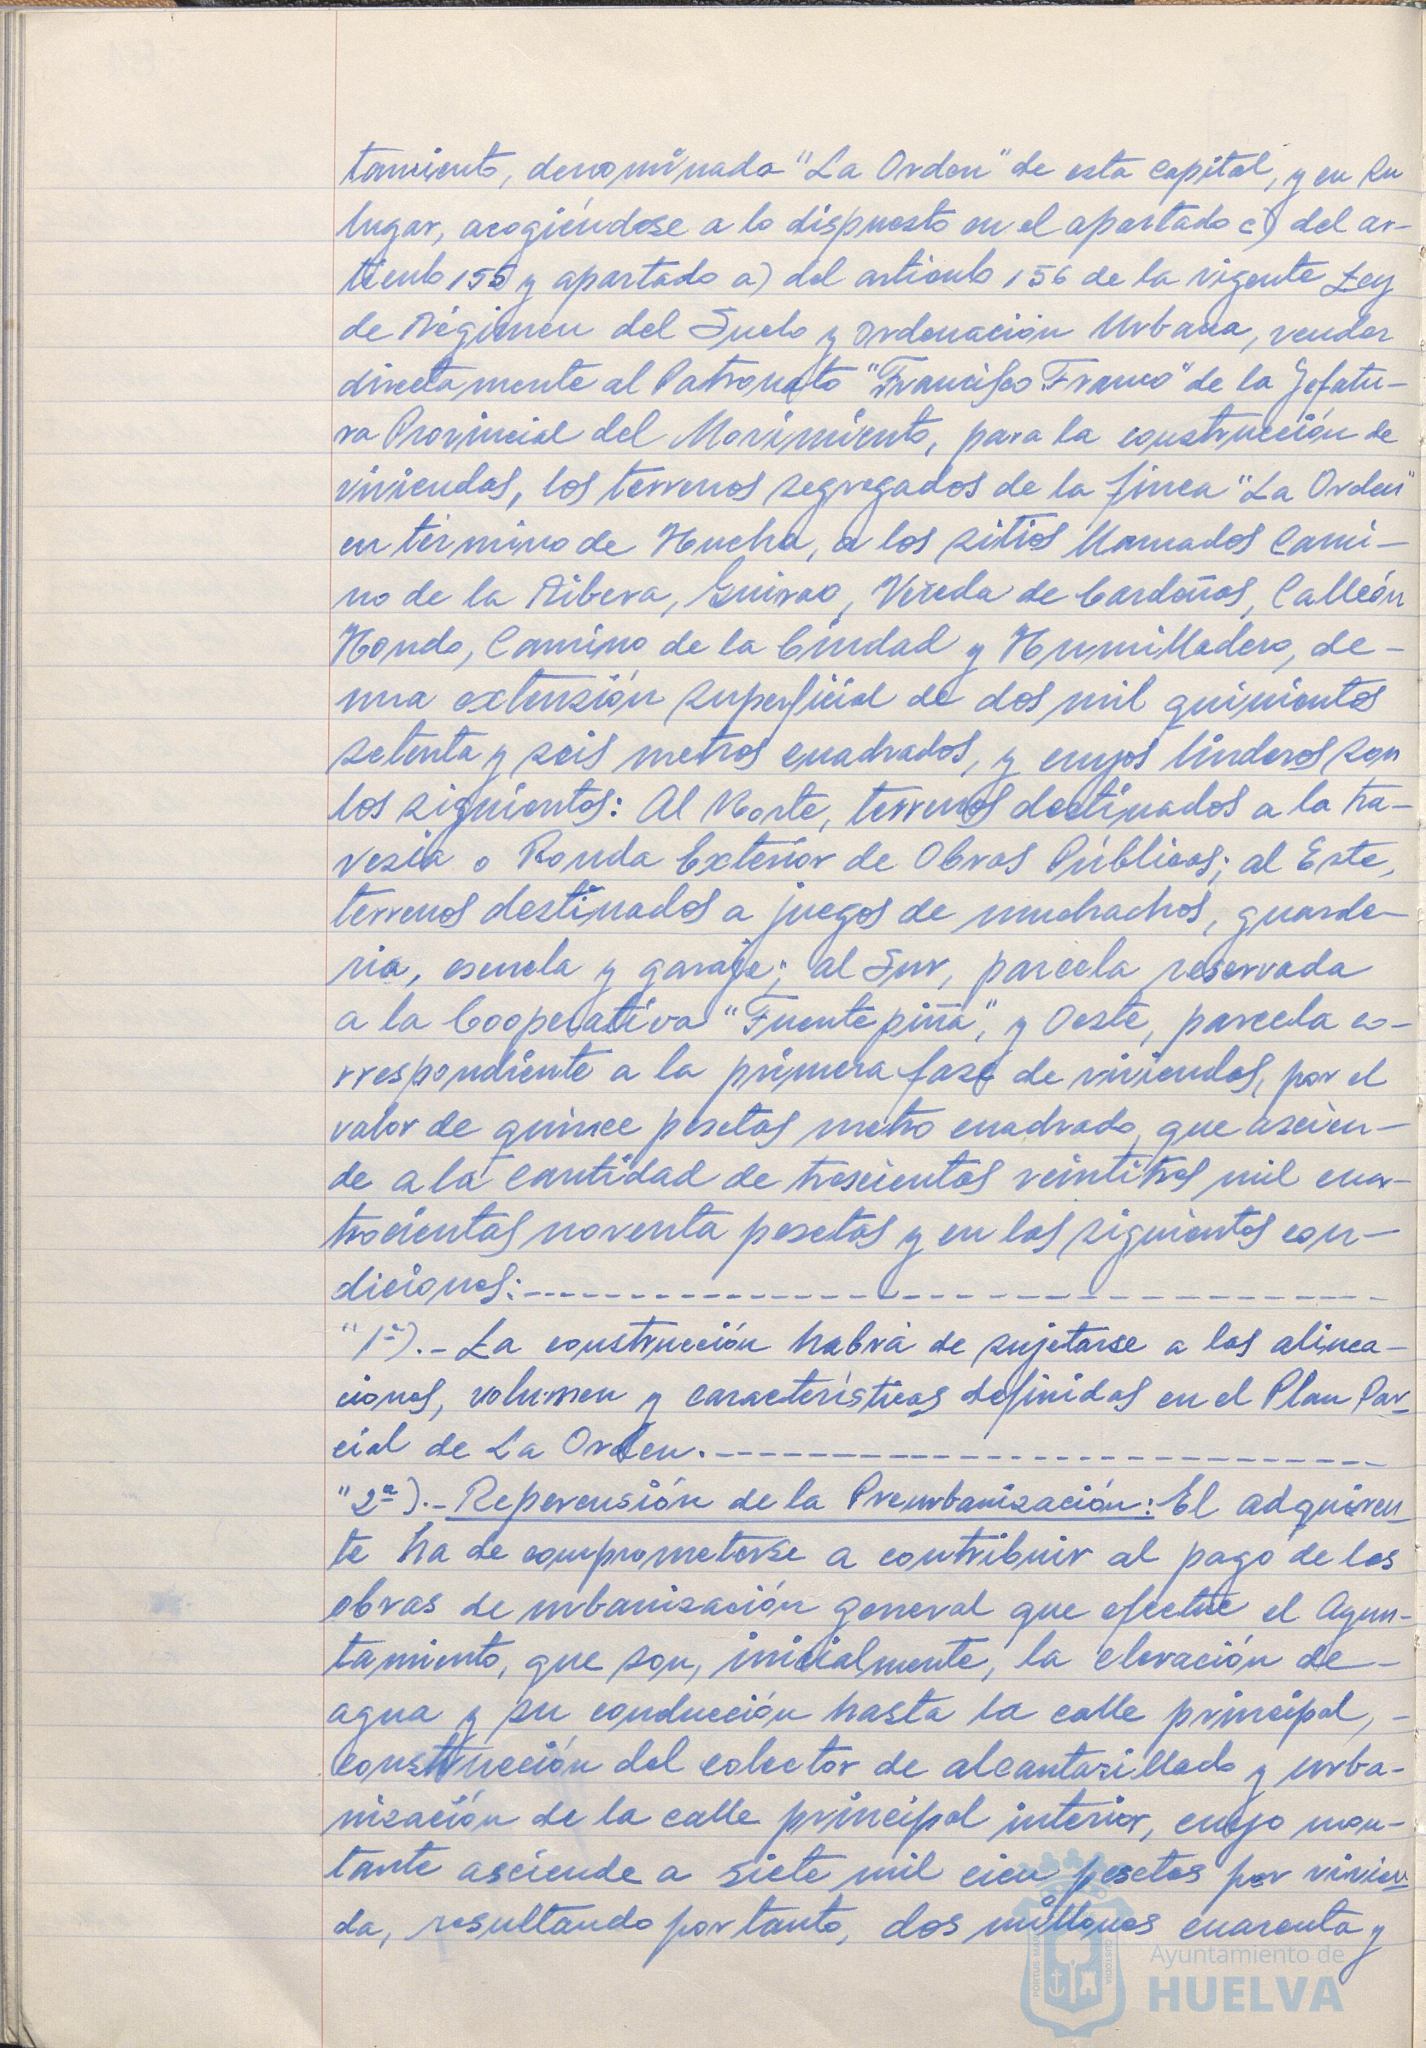 tamiento, denominada "La Orden" de esta capital, y en su
lugar, acogiéndose a lo dispuesto en el apartado c) del ar-
tículo 155 y apartado a) del artículo 156 de la vigente Ley
de Régimen del Suelo y Ordenación Urbana, vender
directamente al Patronato "Francisco Franco" de la Jefatu-
ra Provincial del Movimiento, para la construcción de
viviendas, los terrenos segregados de la finca "La Orden"
en término de Huelva, a los sitios llamados Cami-
no de la Ribera, Guirao, Vereda de Cardeñas, Callejón
Hondo, Camino de la Ciudad y Humilladero, de-
una extensión superficial de dos mil quinientos
setenta y seis metros cuadrados, y cuyos linderos son
los siguientes: Al Norte, terrenos destinados a la tra-
vesía o Ronda Exterior de Obras Públicas; al Este,
terrenos destinados a juegos de muchachos, guarde-
ría, escuela y garaje; al Sur, parcela reservada
a la Cooperativa "Fuentepiña", y Oeste, parcela co-
rrespondiente a la primera fase de viviendas, por el
valor de quince pesetas metro cuadrado, que ascien-
de a la cantidad de trescientas veintitres mil cua-
trocientas noventa pesetas y en las siguientes con-
diciones:
"1ª).- La construcción habrá de sujetarse a las alinea-
ciones, volumen y características definidas en el Plan Par-
cial de La Orden.
"2ª).- Repercusión de la Preurbanización: El adquiren-
te ha de comprometerse a contribuir al pago de las
obras de urbanización general que efectúe el Ayun-
tamiento, que son, inicialmente, la elevación de-
agua y su conducción hasta la calle principal, -
construcción del colector de alcantarillado y urba-
nización de la calle principal interior, cuyo mon-
tante asciende a siete mil cien pesetas por vivien-
da, resultando por tanto, dos millones cuarenta y
Ayuntamiento de
HUELVA